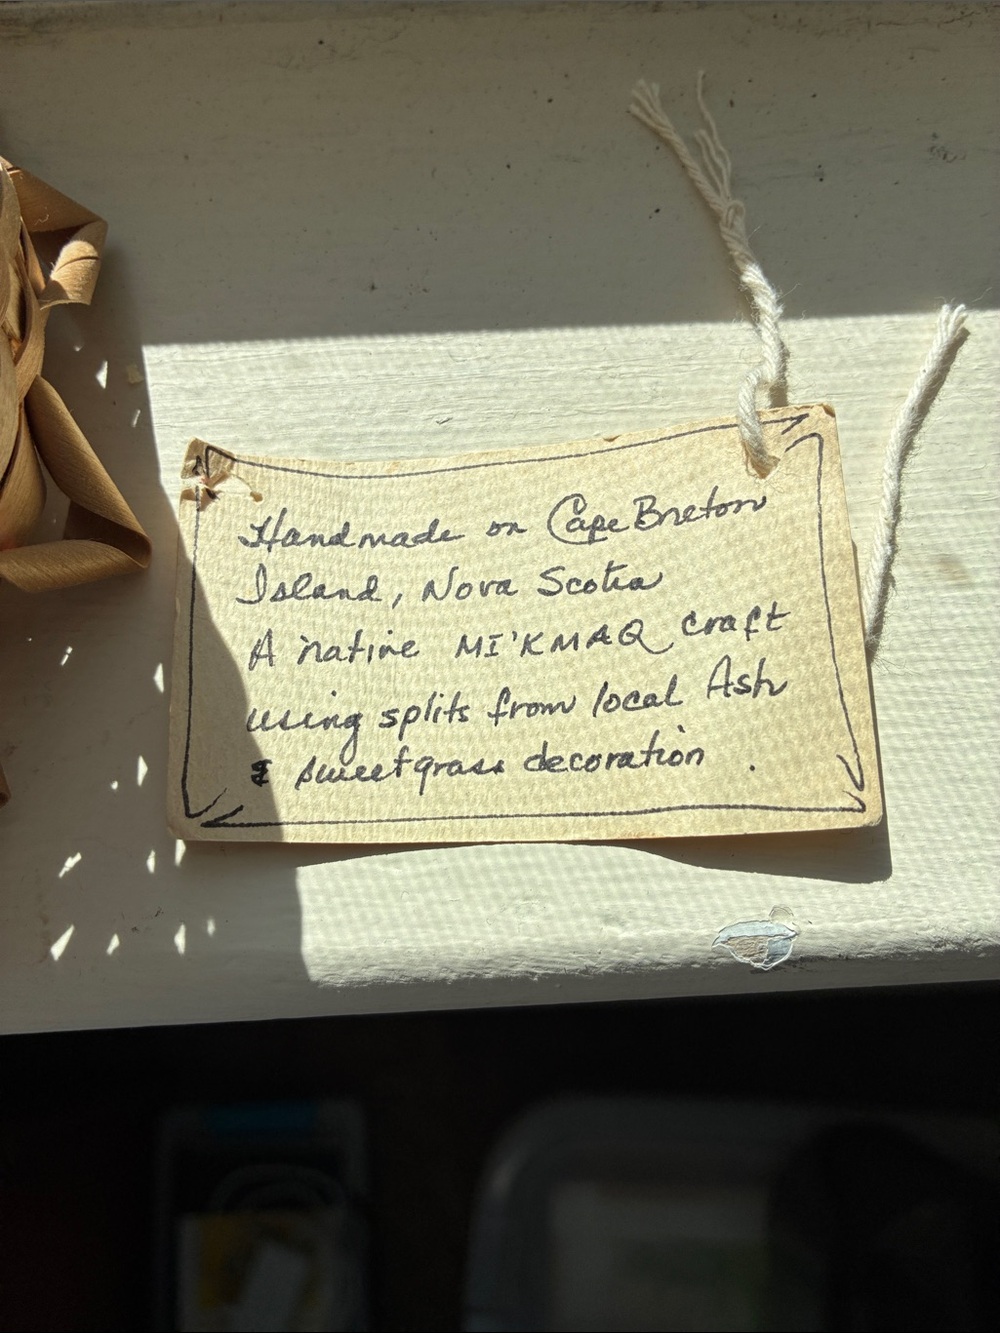 Handmade on Cape Breton
Island, Nova Scotia
A native MI'KMAQ craft
using splits from local Ash
& sweetgrass decoration .